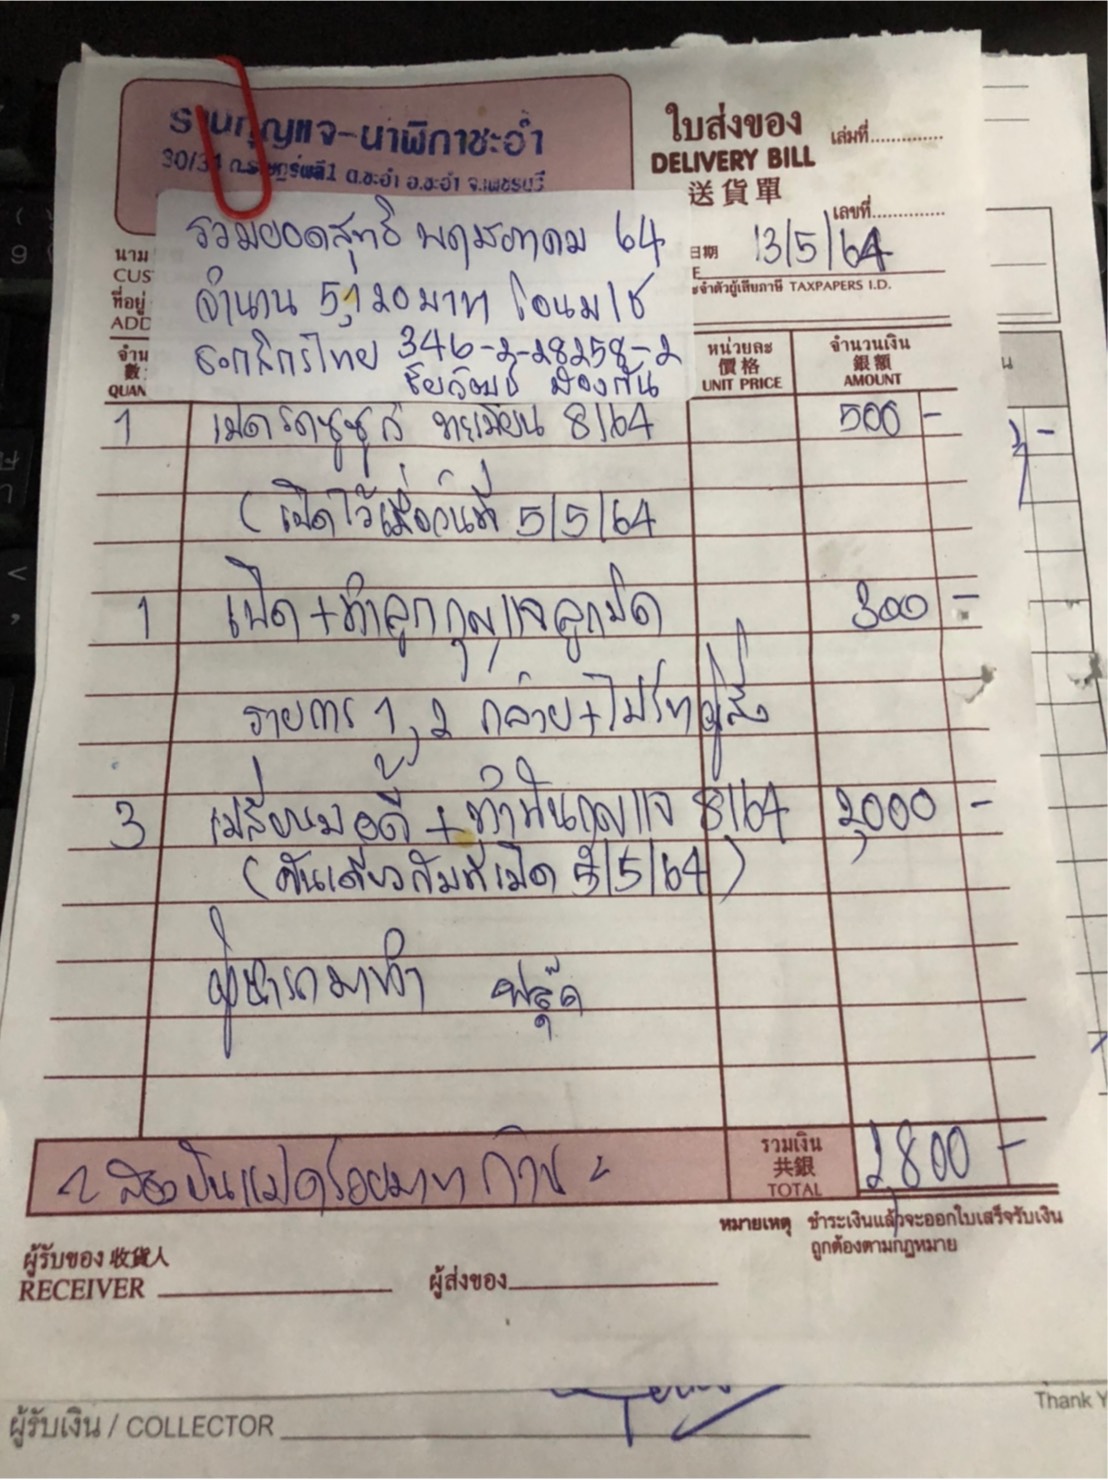 ร้านกุญแจ-นาฬิกาชะอำ
30/31 ถ.ราษฎร์พลี1 ต.ชะอำ อ.ชะอำ จ.เพชรบุรี
ใบส่งของ
DELIVERY BILL
送貨單
เล่มที่
เลขที่
รวมยอดสุทธิ พฤษภาคม 64
จำนวน 5,120 บาท โอนเข้า
ธ.กสิกรไทย 346-2-28258-2
นาม
CUS
日期 13/5/64
ที่อยู่
ADD
TAXPAPERS I.D.
จำน
數
QUAN
หน่วยละ
價格
UNIT PRICE
จำนวนเงิน
銀額
AMOUNT
1 เปิดรถซูซูกิ ทะเบียน 8164 500 -
(เปิดไว้เมื่อวันที่ 5/5/64
1 เปิด+ทำลูกกุญแจลูกบิด 300 -
รายการ 1, 2
3 เปลี่ยน + กุญแจ 8164 2,000 -
(คันเดียวกับที่เปิด 5/5/64)
ผู้นำรถมาทำ
~ สองพันแปดร้อยบาทถ้วน ~
รวมเงิน
共銀
TOTAL
2,800 -
หมายเหตุ ชำระเงินแล้วจะออกใบเสร็จรับเงิน
ถูกต้องตามกฎหมาย
ผู้รับของ 收貨人
RECEIVER
ผู้ส่งของ
ผู้รับเงิน / COLLECTOR
Thank Y